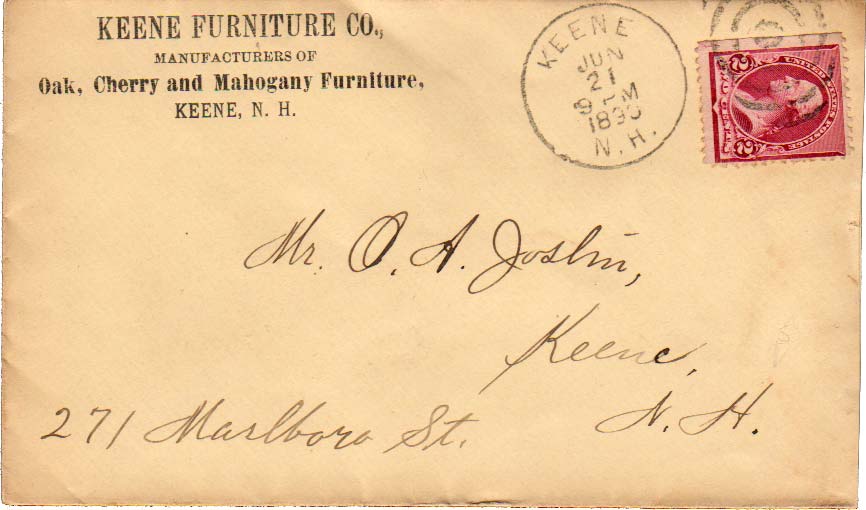 KEENE FURNITURE CO.,
MANUFACTURERS OF
Oak, Cherry and Mahogany Furniture,
KEENE, N. H.
KEENE
JUN
21
9 PM
1890
N.H.
UNITED STATES POSTAGE
2 2
Mr. O. A. Joslin,
Keene,
N. H.
271 Marlboro St.